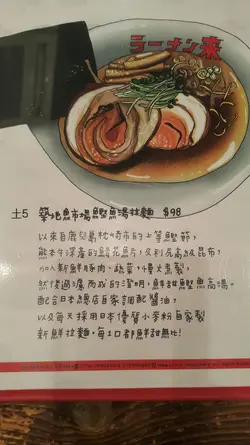 ラーメン来
土5 築地魚市場鰹魚湯拉麵 $98
以來自鹿兒島枕崎市的上等鰹節,
熊本牛深產的鯖花魚片,及利尻高級昆布,
加入新鮮豚肉、蔬菜,慢火熬製,
然後過濾而成的澄明,鮮甜鰹魚高湯。
配合日本總店自家調配醬油,
以及每天採用日本優質小麥粉自家製
新鮮拉麵,每1口都鮮甜無比!